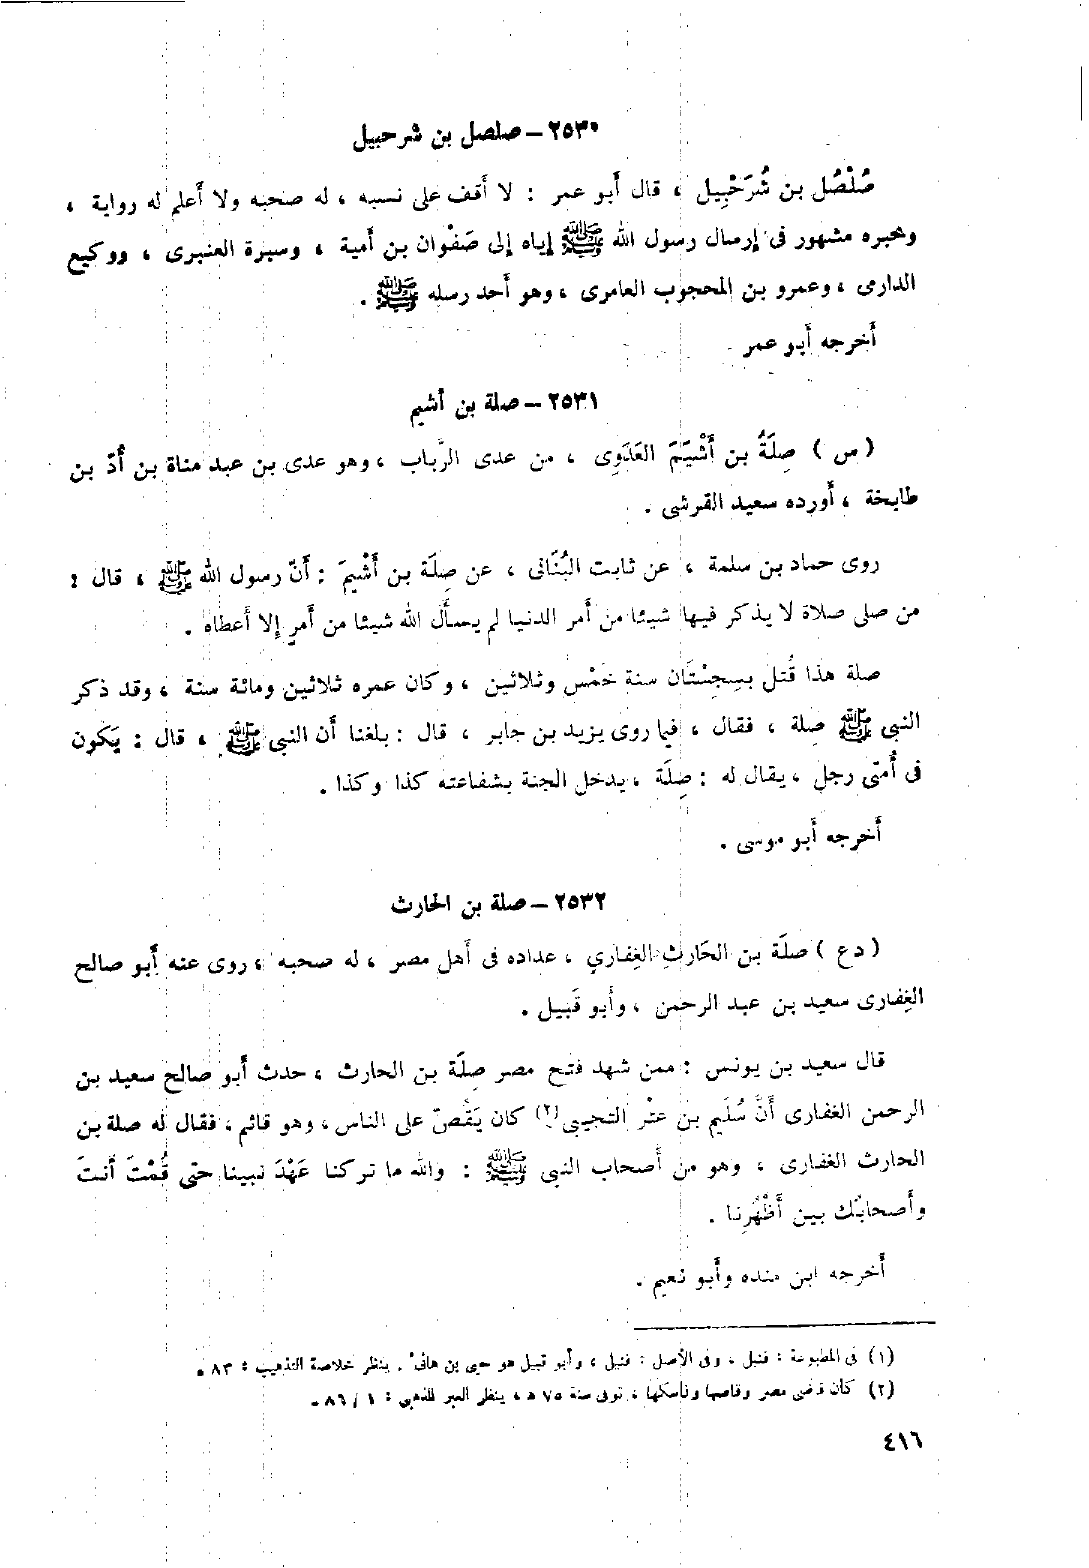 ٢٥٣٠ – صلصل بن شرحبيل
صُلْصُل بن شُرَحْبِيل ، قال أبو عمر : لا أقف على نسبه ، له صحبه ولا أعلم له رواية ،
وخبره مشهور فى إرسال رسول الله ﷺ إياه إلى صَفْوان بن أمية ، وسبرة العنبرى ، ووكيع
الدارمى ، وعمرو بن المحجوب العامرى ، وهو أحد رسله ﷺ .
أخرجه أبو عمر
٢٥٣١ – صلة بن أشيم
( س ) صِلَةُ بن أَشْيَمَ العَدَوِى ، من عدى الرّباب ، وهو عدى بن عبد مناة بن أُدّ بن
طابخة ، أورده سعيد القرشى .
روى حماد بن سلمة ، عن ثابت البُنَانى ، عن صِلَة بن أَشْيمَ : أنّ رسول الله ﷺ ، قال :
من صلى صلاة لا يذكر فيها شيئا من أمر الدنيا لم يسأل الله شيئا من أمرٍ إلا أعطاه .
صلة هذا قُتل بسِجِسْتَان سنة خمْس وثلاثين ، وكان عمره ثلاثين ومائة سنة ، وقد ذكر
النبى ﷺ صلة ، فقال ، فيما روى يزيد بن جابر ، قال : بلغنا أن النبى ﷺ ، قال : يَكون
فى أُمتى رجل ، يقال له : صِلَة ، يدخل الجنة بشفاعته كذا وكذا .
أخرجه أبو موسى .
٢٥٣٢ – صلة بن الحارث
( دع ) صلَة بن الحَارثِ الغِفاري ، عداده فى أهل مصر ، له صحبه ، روى عنه أبو صالح
الغِفارى سعيد بن عبد الرحمن ، وأبو قَبيل .
قال سعيد بن يونس : ممن شهد فتح مصر صِلَة بن الحارث ، حدث أبو صالح سعيد بن
الرحمن الغفارى أنَّ سُلَيم بن عتْر التجيبى (٢) كان يَقُصّ على الناس ، وهو قائم ، فقال له صلة بن
الحارث الغفارى ، وهو من أصحاب النبى ﷺ : والله ما تركنا عَهْدَ نبينا حتى قُمْتَ أنتَ
وأصحابُك بين أَظْهُرِنا .
أخرجه ابن منده وأبو نعيم .
(١) فى المطبوعة : قنبل ، وفى الأصل : قنيل ، وأبو قبيل هو حيى بن هانىء . ينظر خلاصة التذهيب : ٨٣ .
(٢) كان قاضى مصر وقاصها وناسكها ، توفى سنة ٧٥ ه ، ينظر العبر للذهبى : ١ / ٨٦ .
٤١٦